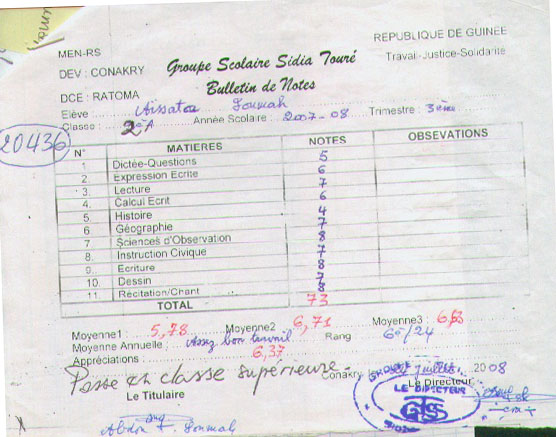 REPUBLIQUE DE GUINEE
Travail-Justice-Solidarité
MEN-RS
DEV : CONAKRY
DCE : RATOMA
Groupe Scolaire Sidia Touré
Bulletin de Notes
Elève Aissatou Soumah
Classe : 2è A Année Scolaire : 2007-08 Trimestre : 3ème
20436
N° MATIERES NOTES OBSEVATIONS
1. Dictée-Questions 5
2. Expression Ecrite 6
3. Lecture 7
4. Calcul Ecrit 6
5. Histoire 4
6 Géographie 7
7 Sciences d'Observation 8
8. Instruction Civique 7
9. Ecriture 8
10. Dessin 7
11. Récitation/Chant 8
TOTAL 73
Moyenne1 : 5,78 Moyenne2 : 6,71 Moyenne3 : 6,63
Moyenne Annuelle : 6,37 Rang 6è/24
Appréciations : Assez bon travail
Passe en classe supérieure
Conakry, le Juillet 2008
Le Titulaire
Le Directeur
LE DIRECTEUR
Soumah